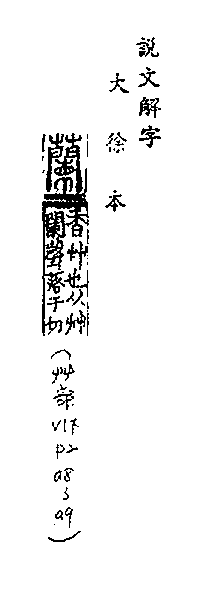 說文解字
大徐本
蘭
香艸也从艸
闌聲落干切
(艸部V1下P2a8~a9)